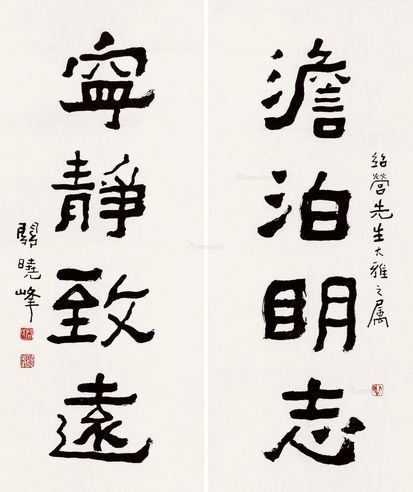 紹營先生大雅之属
澹泊明志
寧靜致遠
關曉峰